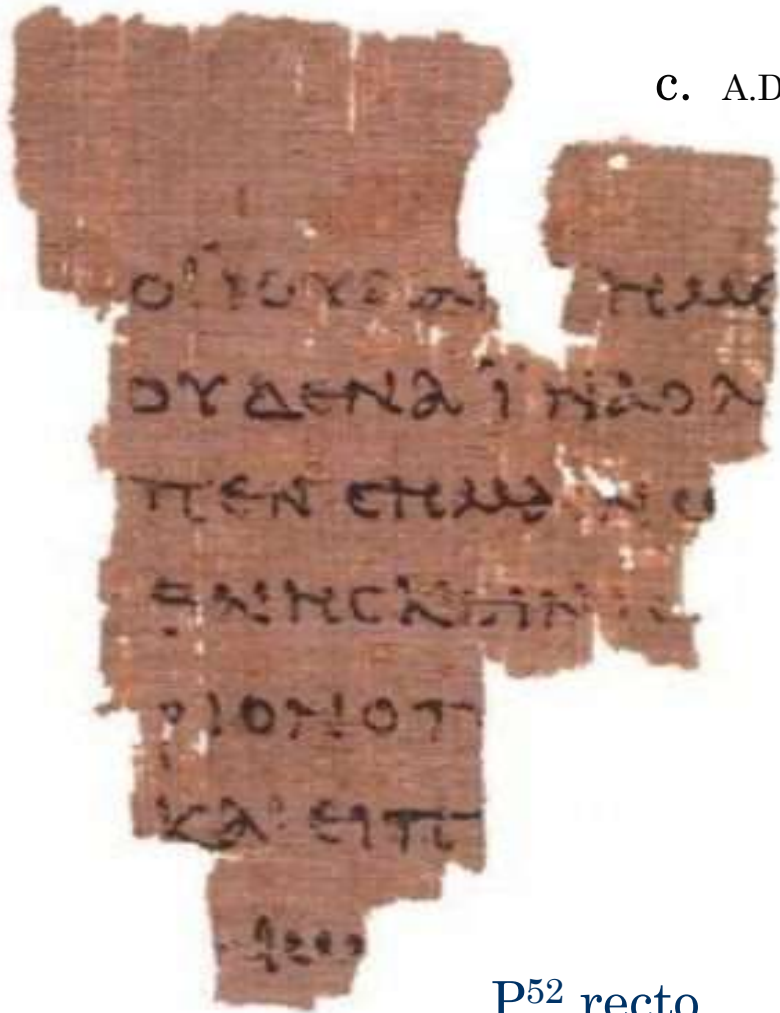 c. A.D
ΟΙ ΙΟΥΔΑΙ ΗΜΕ
ΟΥΔΕΝΑ ΙΝΑ Ο Λ
ΠΕΝ CΗΜΑΙΝΩ
ΘΝΗCΚΕΙΝ
ΡΙΟΝ Ο Π
ΚΑΙ ΕΙΠ
P⁵² recto